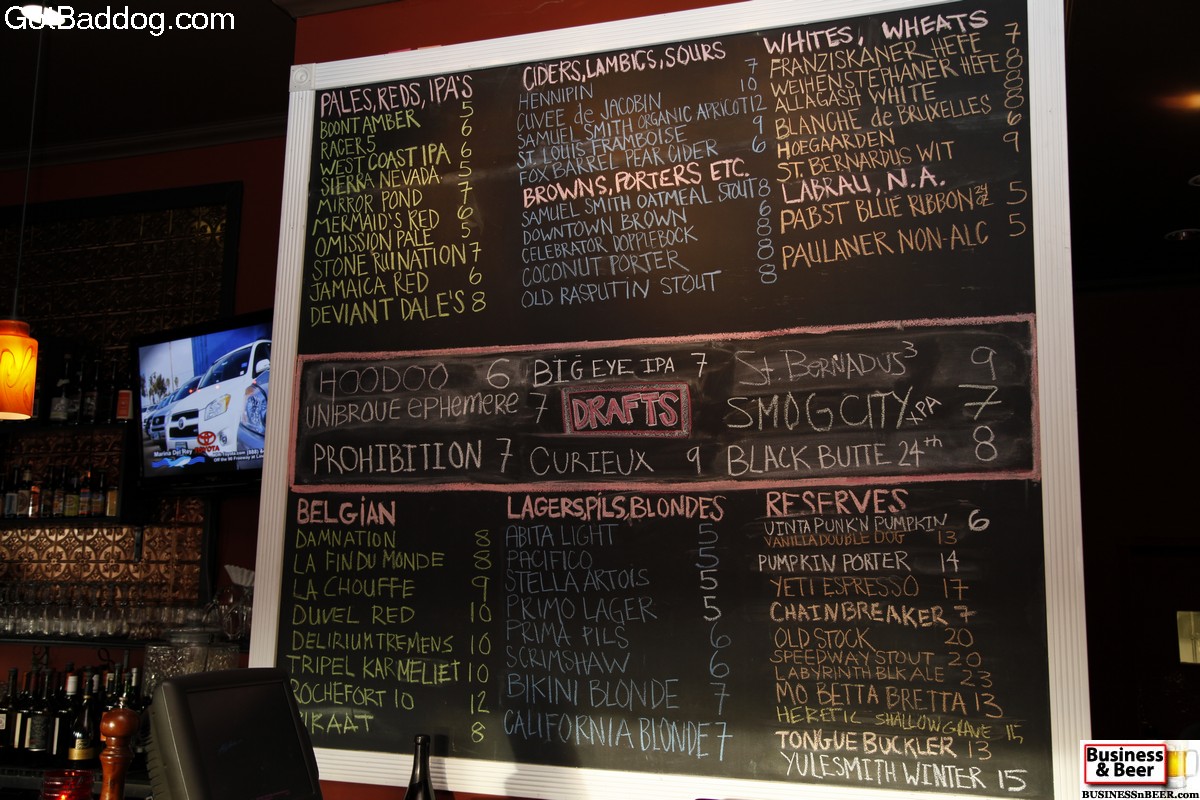 GotBaddog.com
PALES, REDS, IPA'S
BOONT AMBER 5
RACER 5 6
WEST COAST IPA 6
SIERRA NEVADA 5
MIRROR POND 7
MERMAID'S RED 6
OMISSION PALE 5
STONE RUINATION 7
JAMAICA RED 6
DEVIANT DALE'S 8
CIDERS, LAMBICS, SOURS
HENNIPIN 7
CUVEE de JACOBIN 10
SAMUEL SMITH ORGANIC APRICOT 12
ST. LOUIS FRAMBOISE 9
FOX BARREL PEAR CIDER 6
BROWNS, PORTERS ETC.
SAMUEL SMITH OATMEAL STOUT 8
DOWNTOWN BROWN 6
CELEBRATOR DOPPLEBOCK 8
COCONUT PORTER 8
OLD RASPUTIN STOUT 8
WHITES, WHEATS
FRANZISKANER HEFE 7
WEIHENSTEPHANER HEFE 8
ALLAGASH WHITE 8
BLANCHE de BRUXELLES 8
HOEGAARDEN 6
ST. BERNARDUS WIT 9
LABRAU, N.A.
PABST BLUE RIBBON 24 OZ 5
PAULANER NON-ALC 5
HOODOO 6
UNIBROUE EPHEMERE 7
PROHIBITION 7
BIG EYE IPA 7
DRAFTS
CURIEUX 9
ST. BERNADUS 3 9
SMOG CITY IPA 7
BLACK BUTTE 24th 8
BELGIAN
DAMNATION 8
LA FIN DU MONDE 8
LA CHOUFFE 9
DUVEL RED 10
DELIRIUM TREMENS 10
TRIPEL KARMELIET 10
ROCHEFORT 10 12
PIRAAT 8
LAGERS, PILS, BLONDES
ABITA LIGHT 5
PACIFICO 5
STELLA ARTOIS 5
PRIMO LAGER 5
PRIMA PILS 6
SCRIMSHAW 6
BIKINI BLONDE 7
CALIFORNIA BLONDE 7
RESERVES
UINTA PUNK'N PUMPKIN 6
VANILLA DOUBLE DOG 13
PUMPKIN PORTER 14
YETI ESPRESSO 17
CHAINBREAKER 7
OLD STOCK 20
SPEEDWAY STOUT 20
LABYRINTH BLK ALE 23
MO BETTA BRETTA 13
HERETIC SHALLOW GRAVE 15
TONGUE BUCKLER 13
YULESMITH WINTER 15
Marina Del Rey
TOYOTA
Business
& Beer
BUSINESSnBEER.com